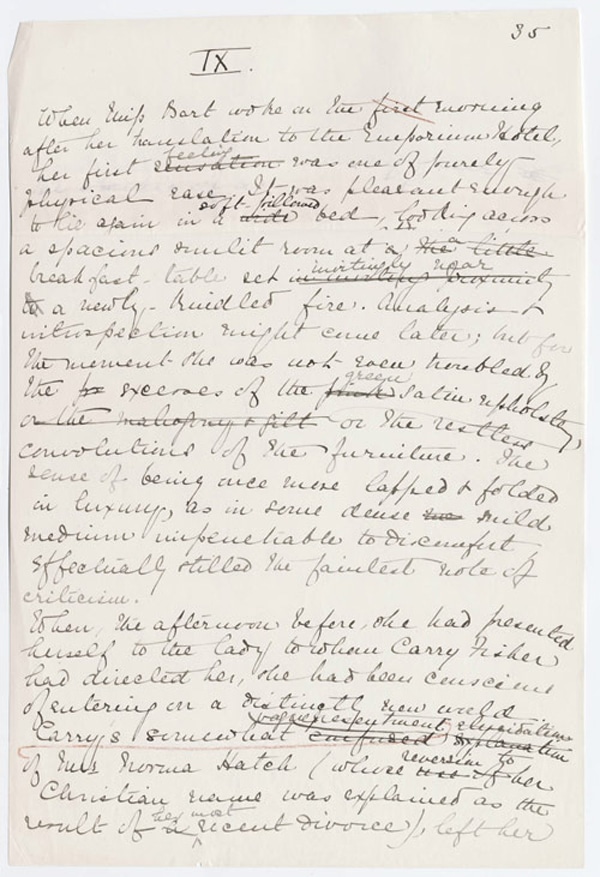 35
IX.
When Miss Bart woke on the first morning
after her translation to the Emporium Hotel,
feeling
her first sensation was one of purely
physical ease. It was pleasant enough
soft-pillowed
to lie again in a wide bed, looking across
a spacious sunlit room at a the little
invitingly near
breakfast-table set in inviting proximity
to a newly-kindled fire. Analysis &
introspection might come later; but for
the moment she was not even troubled by
green
the excesses of the satin upholstery,
or the mahogany & gilt or the restless
convolutions of the furniture. The
sense of being once more lapped & folded
in luxury, as in some dense mild
medium impenetrable to discomfort,
effectually stilled the faintest note of
criticism.
When, the afternoon before, she had presented
herself to the lady to whom Carry Fisher
had directed her, she had been conscious
of entering on a distinctly new world.
vague presentment elucidation
Carry's somewhat confused explanation
reversion to
of Mrs Norma Hatch (whose use of her
Christian name was explained as the
her most
result of a recent divorce), left her